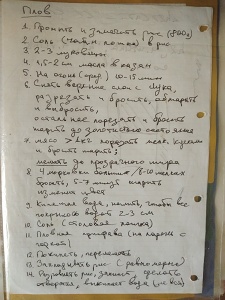 Плов
1. Промыть и замочить рис (800г)
2. Соль (чайн. ложка) в рис
3. 2-3 луковицы
4. 1,5-2 см масла в казан
5. На огонь (сред) 10-15 мин
6. Снять верхние слои с лука,
разрезать и бросить, обжарить
и выбросить,
остальное порезать и бросить
жарить до золотистого состояния
7. мясо > 1кг порезать мелк. кусками
и бросить жарить,
мешать до прозрачного жира
8. 4 моркови больших / 8-10 мелких
бросить, 5-7 минут жарить
изменит цвет
9. Кипяток вода, налить, чтобы все
покрыло водой 2-3 см
10. Соль (столовая ложка)
11. Пловная приправа (на ладонь с
горкой)
12. Пожарить, перемешать
13. Закладывать рис (равномерно)
14. Разровнять рис, сделать
отверстия, выкипает вода (не вся)